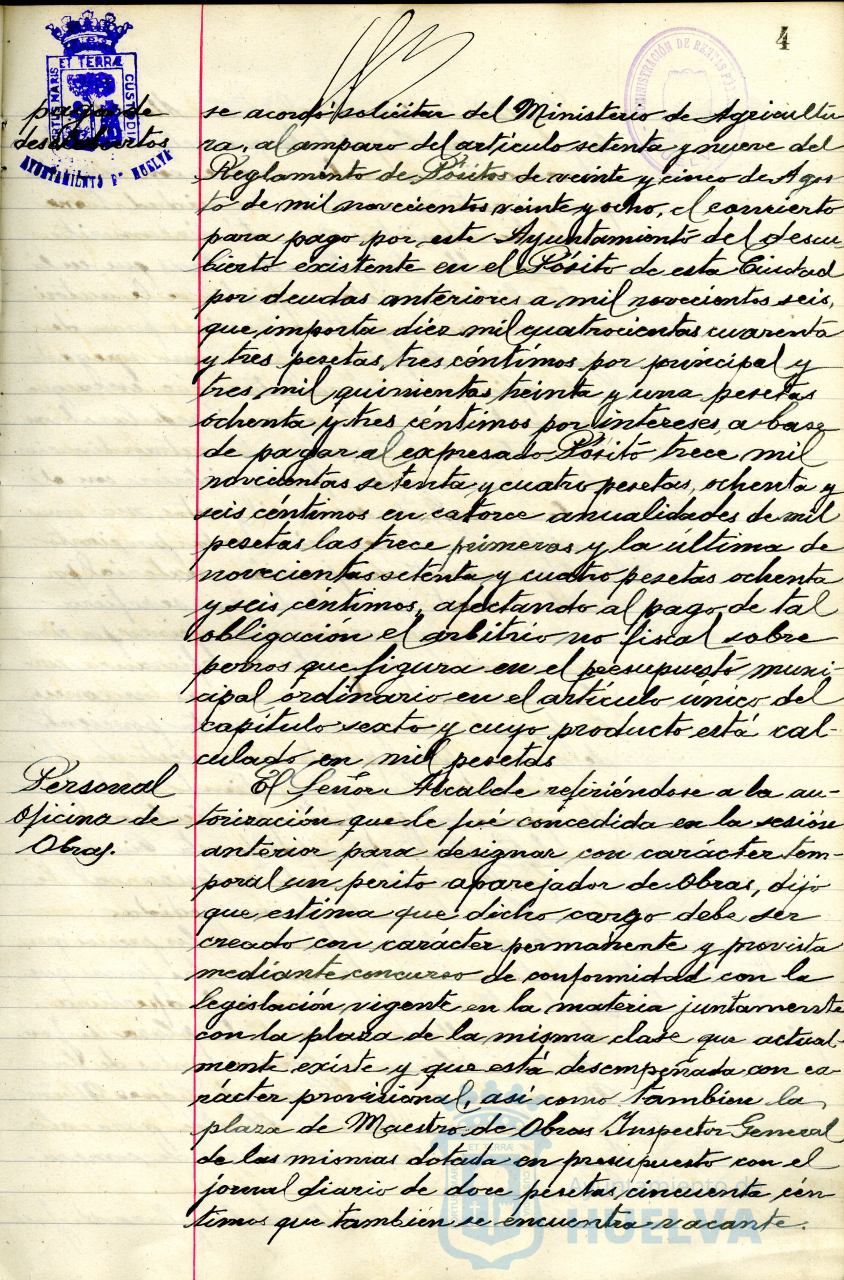 4
PORTUS MARIS ET TERRÆ CUSTODIA
AYUNTAMIENTO DE HUELVA
ADMINISTRACIÓN DE RENTAS
HUELVA
pago de
descubiertos
se acordó solicitar del Ministerio de Agricultu
ra, al amparo del artículo setenta y nueve del
Reglamento de Pósitos de veinte y cinco de Agos
to de mil novecientos veinte y ocho, el concierto
para pago por este Ayuntamiento del descu
bierto existente en el Pósito de esta Ciudad
por deudas anteriores a mil novecientos seis,
que importa diez mil cuatrocientas cuarenta
y tres pesetas, tres céntimos por principal y
tres mil quinientas treinta y una pesetas
ochenta y tres céntimos por intereses, a base
de pagar al expresado Pósito trece mil
novecientas setenta y cuatro pesetas, ochenta y
seis céntimos en catorce anualidades de mil
pesetas las trece primeras y la última de
novecientas setenta y cuatro pesetas ochenta
y seis céntimos, afectando al pago de tal
obligación el arbitrio no fiscal sobre
perros que figura en el presupuesto muni-
cipal ordinario en el artículo único del
capítulo sexto y cuyo producto está cal-
culado en mil pesetas
Personal
Oficina de
Obras.
El Señor Alcalde refiriéndose a la au-
torización que le fué concedida en la sesión
anterior para designar con carácter tem-
poral un perito aparejador de Obras, dijo
que estima que dicho cargo debe ser
creado con carácter permanente y provista
mediante concurso de conformidad con la
legislación vigente en la materia juntamente
con la plaza de la misma clase que actual-
mente existe y que está desempeñada con ca-
rácter provisional, así como tambien la
plaza de Maestro de Obras Inspector General
de las mismas dotada en presupuesto con el
jornal diario de doce pesetas cincuenta cén
timos que también se encuentra vacante.
Ayuntamiento de
HUELVA